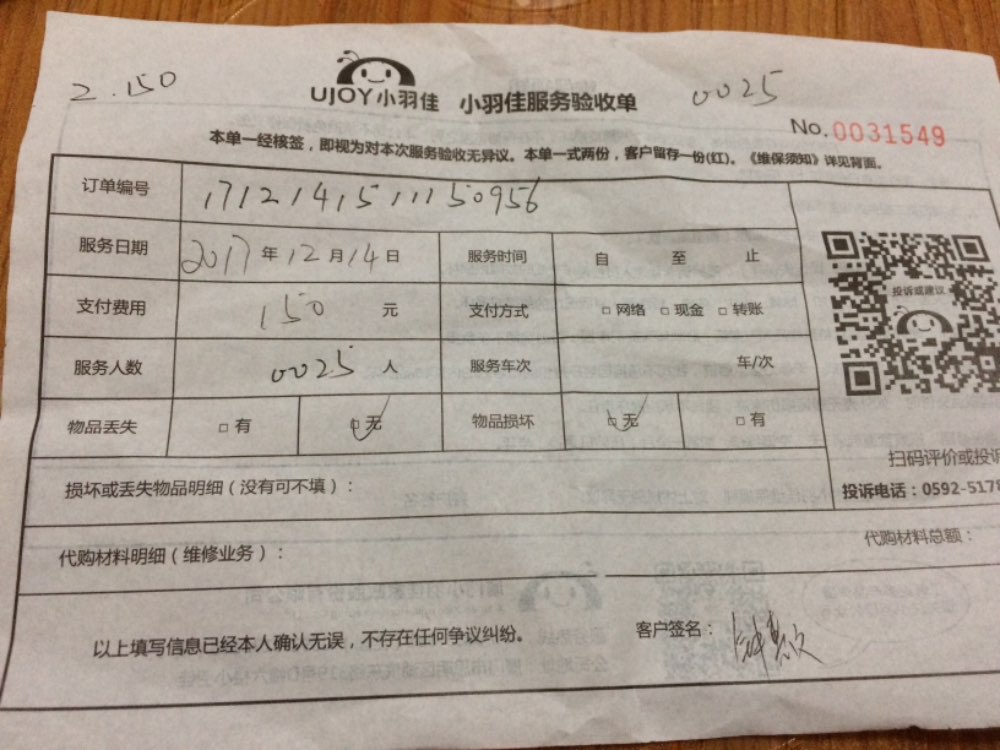 2.150
UJOY小羽佳 小羽佳服务验收单
0025
No.0031549
本单一经核签，即视为对本次服务验收无异议。本单一式两份，客户留存一份(红)。《维保须知》详见背面。
订单编号 1712141511150956
服务日期 2017年12月14日 服务时间 自 至 止
投诉或建议
支付费用 150 元 支付方式 □网络 □现金 □转账
服务人数 0025 人 服务车次 车/次
物品丢失 □有 □无 物品损坏 □无 □有
扫码评价或投诉
损坏或丢失物品明细（没有可不填）：
投诉电话：0592-5178
代购材料明细（维修业务）：
代购材料总额：
以上填写信息已经本人确认无误，不存在任何争议纠纷。
客户签名：